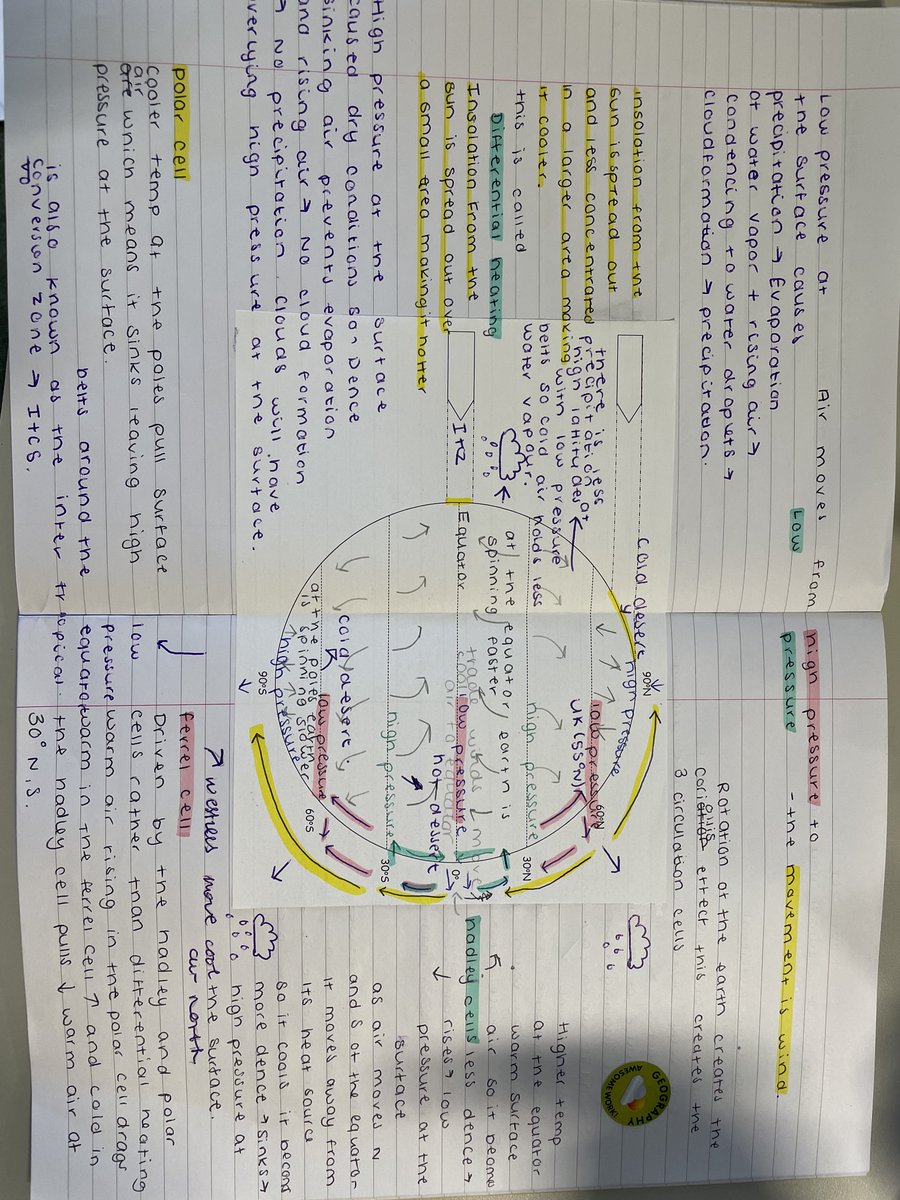 Air moves from high pressure to
Low pressure - the movement is wind.
Low pressure at
the surface causes
precipitation → Evaporation
of water vapor + rising air →
condencing to water droplets →
cloud formation → precipitation.
Rotation of the earth creates the
coriolis effect this creates the
3 circulation cells
insolation from the
sun is spread out
and less concentrated
in a larger area making
it cooler.
this is called
Differential heating
Insolation from the
sun is spread out over
a small area making it hotter
there is less
precipitation at
high latitudes
with low pressure
belts so cold air holds less
water vapour.
ITCZ
cold desert
high pressure
90°N
low pressure
60°N
UK (55°N)
high pressure
30°N
at the equator earth is
spinning faster
trade winds
Equator
low pressure
0°
hot dessert
high pressure
30°S
cold desert
low pressure
60°S
at the poles earth
is spinning slower
high pressure
90°S
GEOGRAPHY
AWESOMEWORK
Higher temp
at the equator
warm surface
hadley cells
air so it becomes
less dence →
rises → low
pressure at the
surface
as air moves N
and S of the equator
it moves away from
its heat source
so it cools it becoms
more dence → sinks →
high pressure at
the surface.
High pressure at the surface
caused dry conditions so Dence
sinking air prevents evaporation
and rising air → No cloud formation
→ No precipitation. clouds will have
overlying high pressure at the surface.
polar cell
cooler temp at the poles pull surface
air which means it sinks leaving high
pressure at the surface.
→ westlies move cool
air north
ferrel cell
Driven by the hadley and polar
cells rather than differential heating
warm air rising in the polar cell drags
warm in the ferrel cell ↗ and cold in
the hadley cell pulls ↓ warm air at
30° N, S.
low
pressure
belts around the equator
is also known as the inter tropical
conversion zone → ITCS.